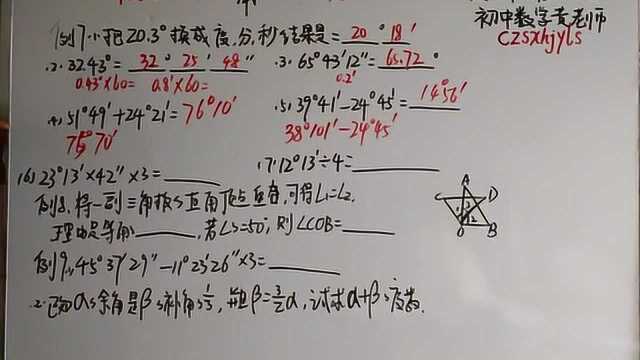 初中数学黄老师
czsxhjyls
例7 1.把20.3°换成度、分、秒结果是=20°18′
.2. 32.43°=32°25′48″ .3. 65°43′12″=65.72°
0.43°×60= 0.8′×60= 0.2′
.4. 51°49′+24°21′=76°10′ .5. 39°41′-24°45′=14°56′
75°70′ 38°101′-24°45′
16) 23°13′×42″×3=____ .7. 12°13′÷4=____
例8、将一副三角板的直角顶点重合,可得∠1=∠2,
理由是等角的____,若∠3=50°,则∠COB=____
A
C D
3
1 2
O B
例9.1. 45°37′29″-11°23′26″×3=____
.2. 已知α的余角是β的补角的1/3,并且β=3/2α,试求α+β的度数.